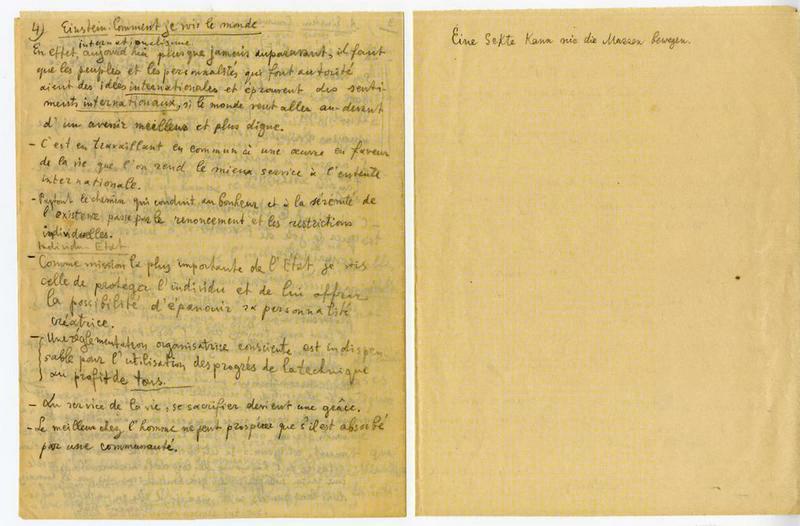 4) Einstein: Comment je vois le monde
internationalisme
En effet aujourd'hui plus que jamais auparavant, il faut
que les peuples et les personnalités qui font autorité
aient des idées internationales et éprouvent des senti-
ments internationaux, si le monde veut aller au-devant
d'un avenir meilleur et plus digne.
- C'est en travaillant en commun à une œuvre en faveur
de la vie que l'on rend le mieux service à l'entente
internationale.
- Partout le chemin qui conduit au bonheur et à la sérénité de
l'existence passe par le renoncement et les restrictions
individuelles.
Individu - Etat
- Comme mission la plus importante de l'Etat, je vois
celle de protéger l'individu et de lui offrir
la possibilité d'épanouir sa personnalité
créatrice.
- Une réglementation organisatrice consciente est indispen-
sable pour l'utilisation des progrès de la technique
au profit de tous.
- Au service de la vie, se sacrifier devient une grâce.
- Le meilleur chez l'homme ne peut prospérer que s'il est absorbé
par une communauté.
Eine Sekte kann nie die Massen bewegen.